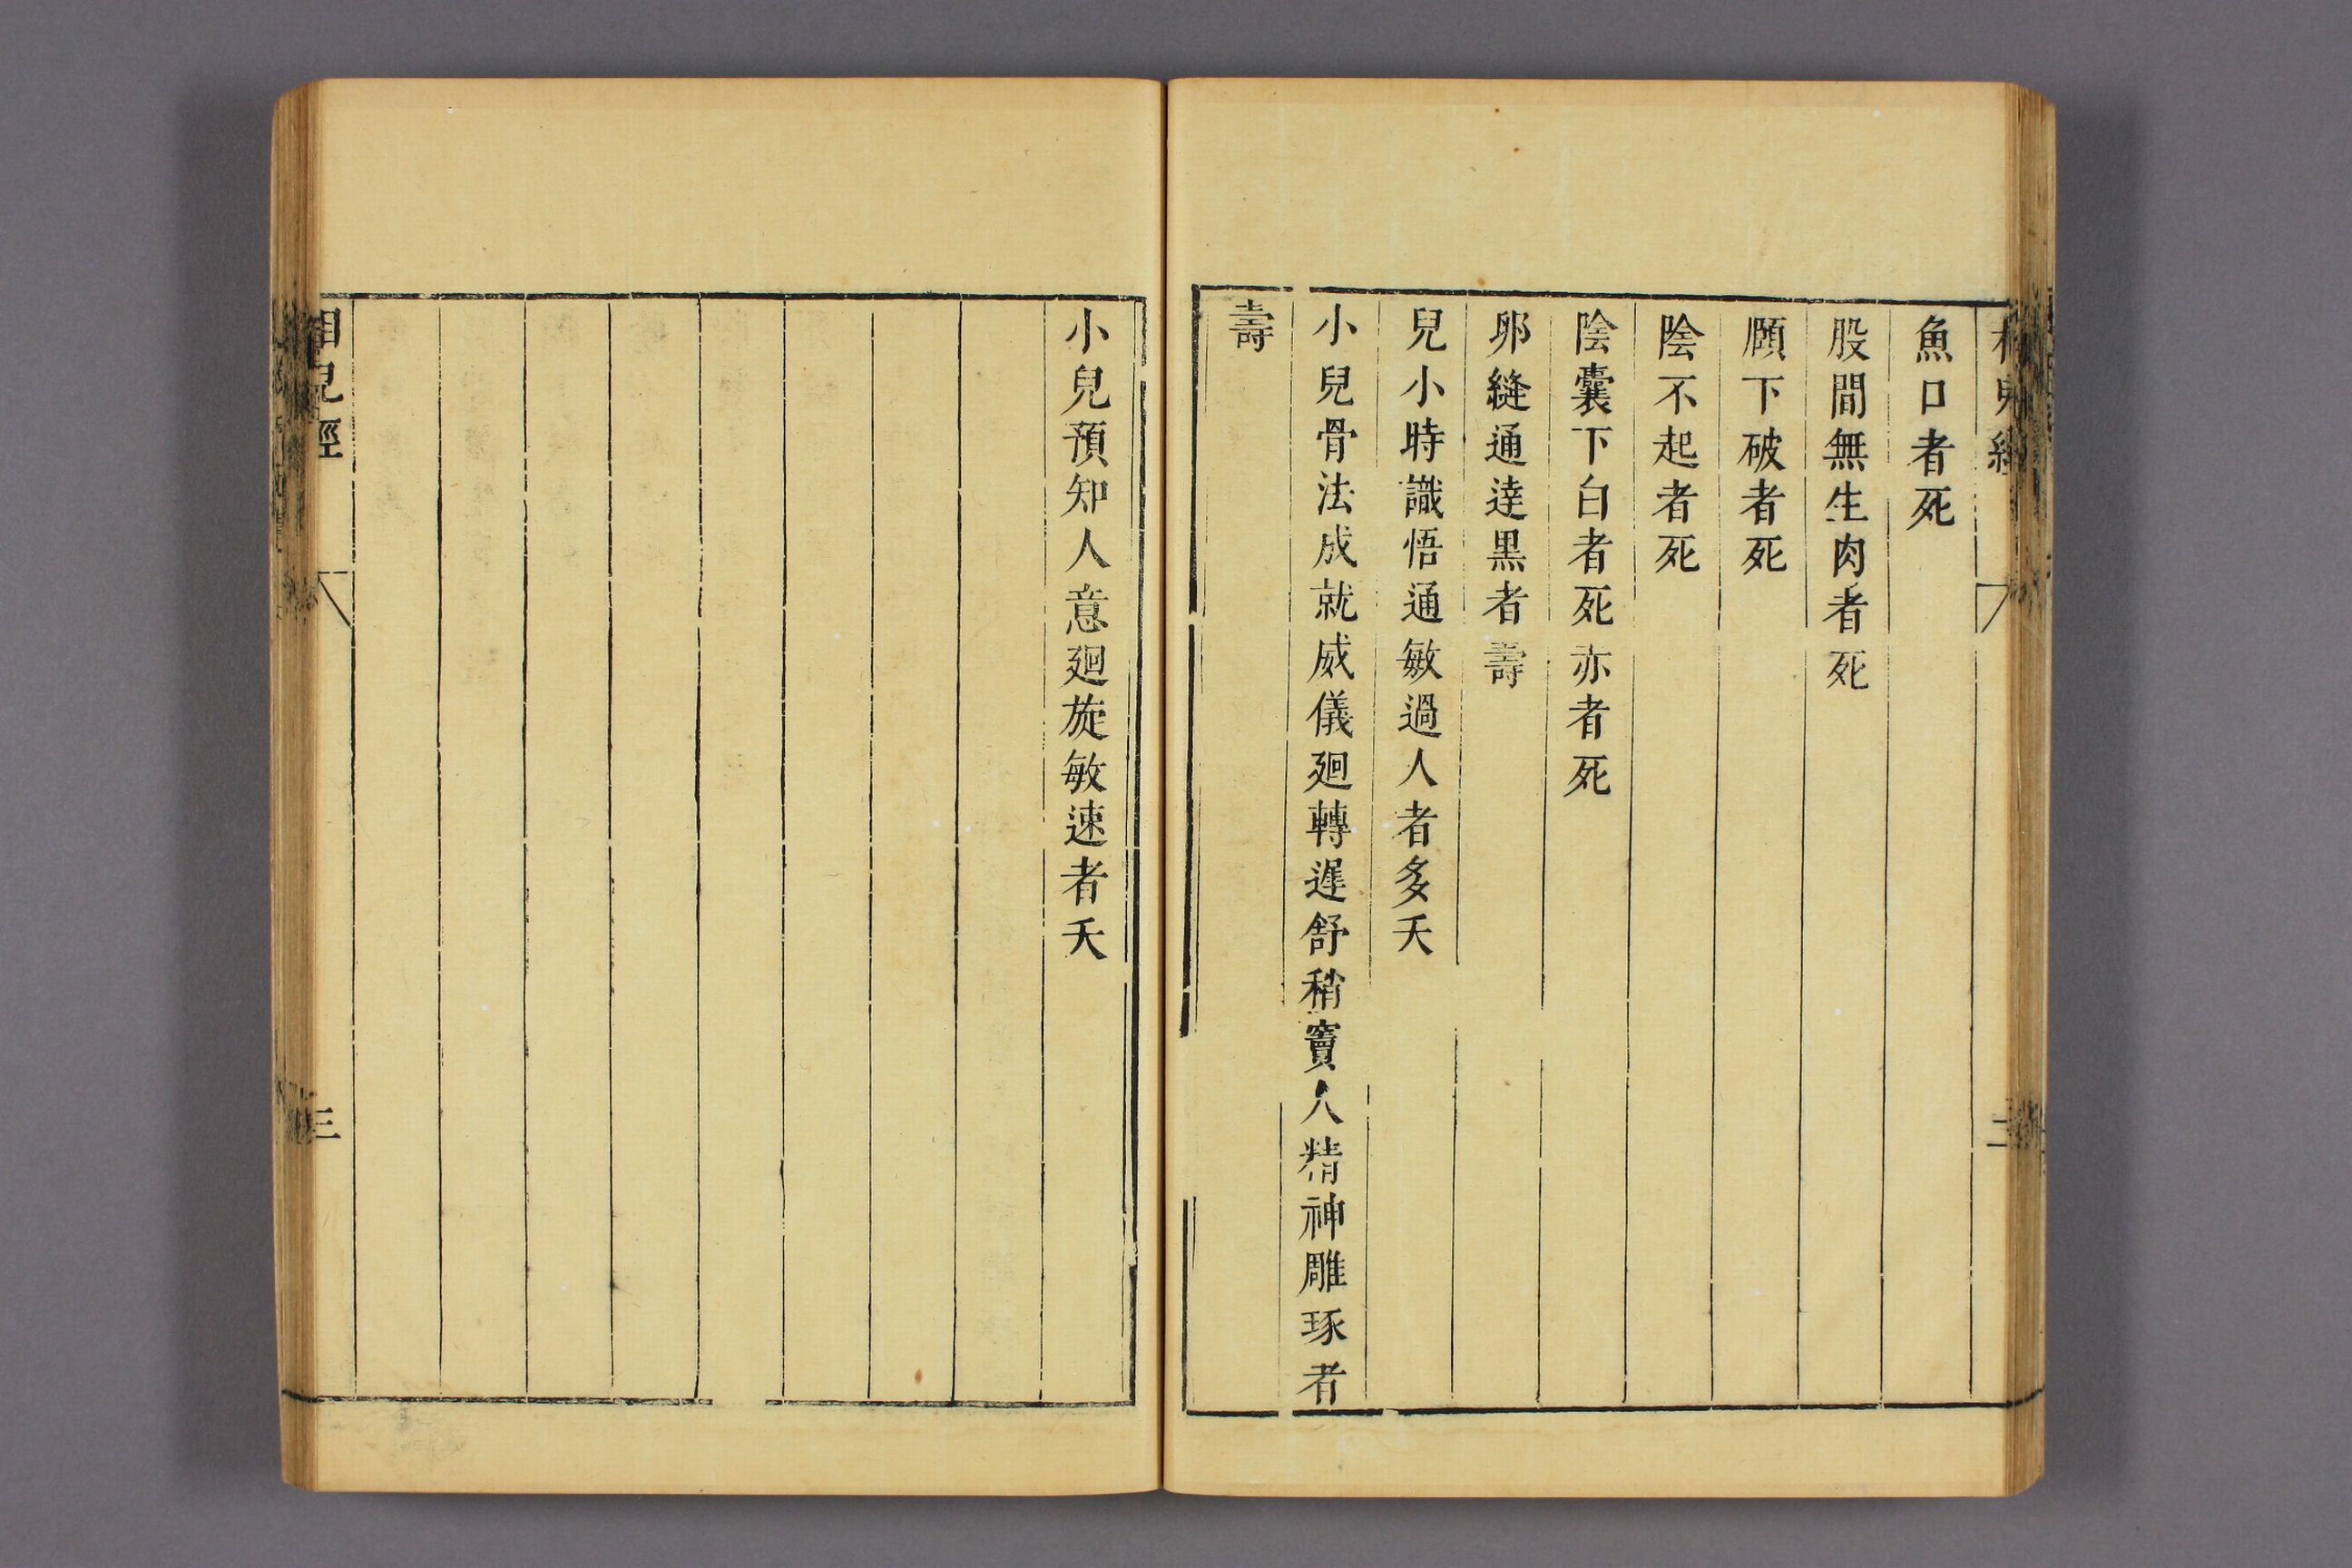 魚口者死
股間無生肉者死
頤下破者死
陰不起者死
陰囊下白者死亦者死
卵縫通達黒者壽
兒小時識悟通敏過人者多夭
小兒骨法成就威儀廻轉遲舒稍費人精神雕琢者
壽
小兒預知人意廻旋敏速者夭
相兒經
三